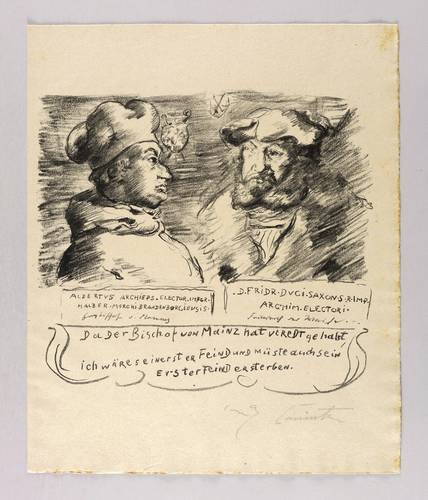 ALBERTVS ARCHIEPS. ELECTOR. IMPER.
HALBER. MARCHI. BRANDENBORGIENSIS
. D. FRIDR. DVCI. SAXONS. R. IMP.
ARCHIM. ELECTORI.
Da der Bischof von Mainz hat veredt gehabt,
ich wäre sein erster Feind und müste auch sein
Erster Feind ersterben.